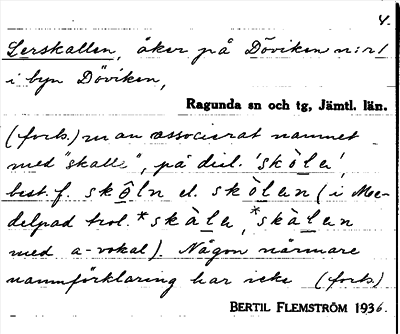 4.
Lerskallen, åker på Döviken n:r 1
i byn Döviken,
Ragunda sn och tg, Jämtl. län.
(forts.) man associerat namnet
med "skalle", på dial. 'skòle',
best. f. skôln el. skòlen (i Me-
delpad trol. *skàle, *skàlen
med a-vokal). Någon närmare
namnförklaring har icke (forts.)
BERTIL FLEMSTRÖM 1936.